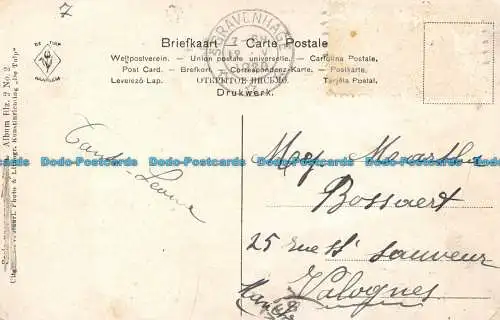 7
Briefkaart - Carte Postale
Weltpostverein. — Union postale universelle. — Cartolina Postale.
Post Card. — Brefkort. — Correspondenz-Karte. — Postkarte.
Levelező-Lap. — ОТКРЫТОЕ ПИСЬМО. — Tarjeta Postal.
Drukwerk.
'S GRAVENHAGE
DE TULP
HAARLEM
Album Blz. 2 No. 2
Photo & Lichtdr. Kunstinrichting „De Tulp"
Tante
Mej Martha
Bossaert
25 rue St Sauveur
Valognes
Manche
Dodo-Postcards Dodo-Postcards Dodo-Postcards Dodo-Postcards Dodo-Postcards